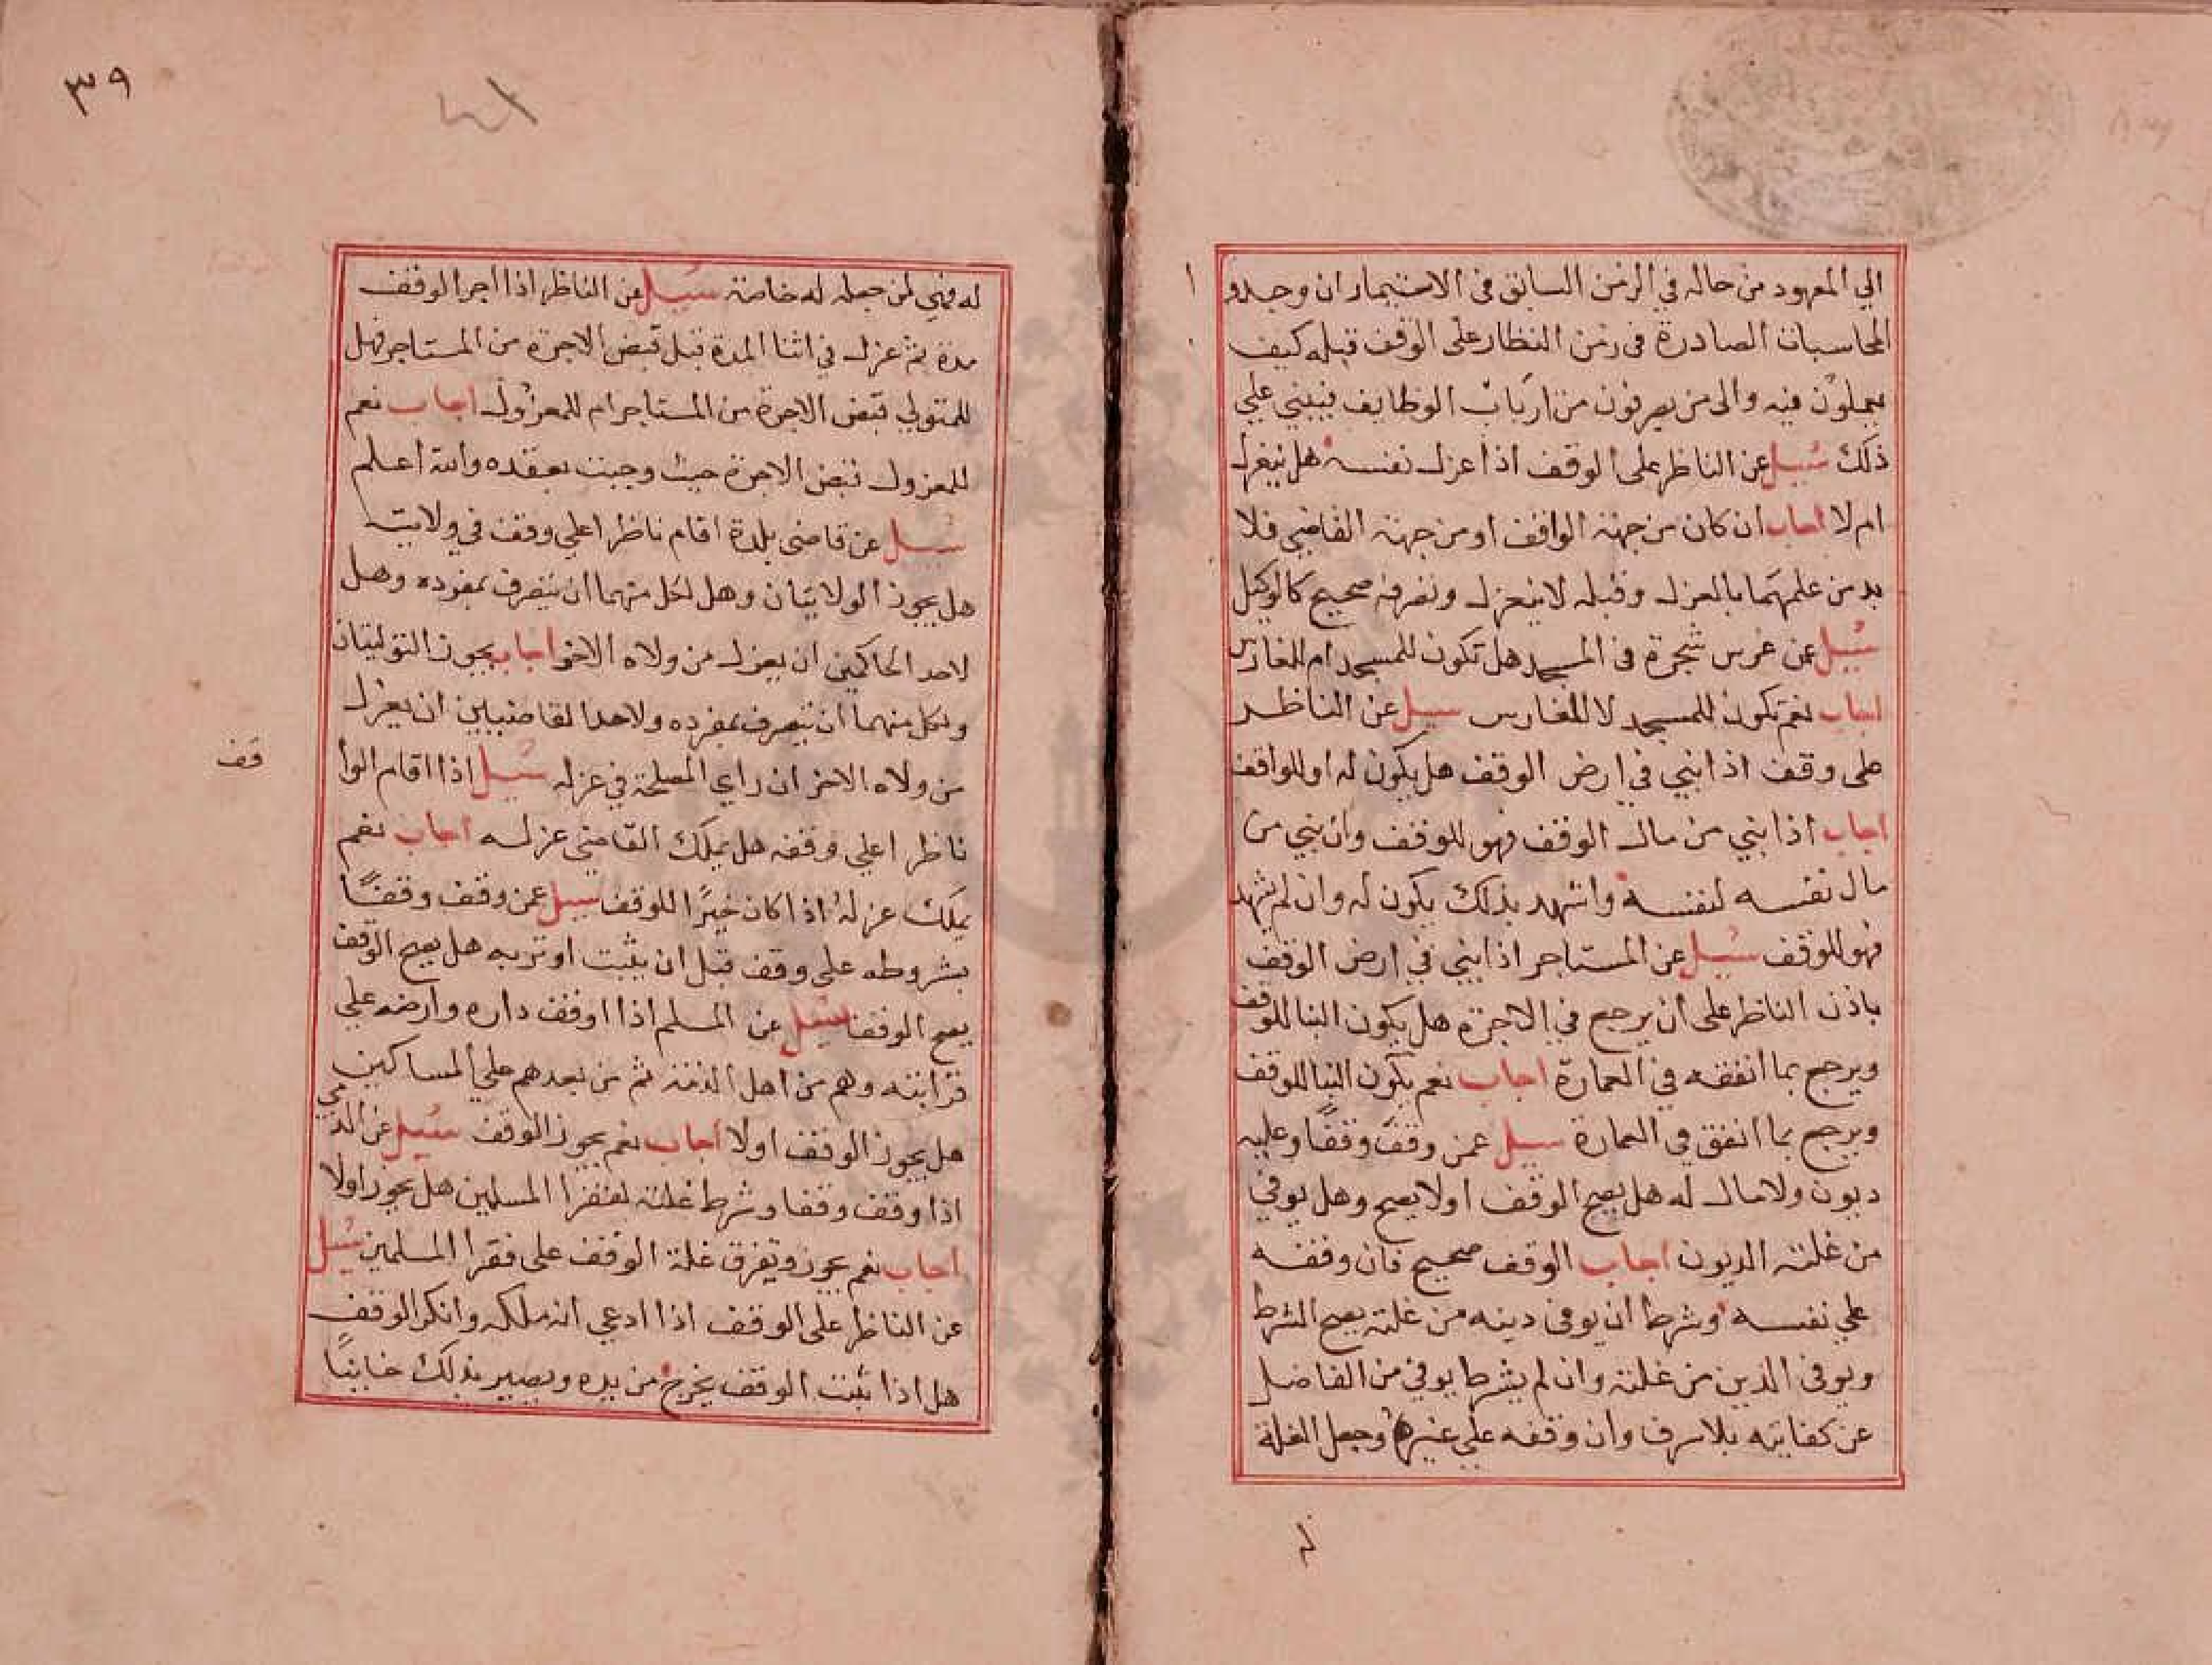 الي المعهود من حاله في الزمن السابق في الاستيمار ان وجدوا
المحاسبات الصادرة في زمن النظار على الوقف قبله كيف
يعملون فيه والى من يصرفون من ارباب الوظايف فيبني علي
ذلك سيل عن الناظر على الوقف اذا عزل نفسه هل ينعزل
ام لا اجاب ان كان من جهة الواقف او من جهة القاضي فلا
بد من علمهما بالعزل وقبله لا ينعزل وتصرفه صحيح كالوكيل
سيل عن غرس شجرة في المسجد هل تكون للمسجد ام للغارس
اجاب نعم تكون للمسجد لا للغارس سيل عن الناظر
على وقف اذا بني في ارض الوقف هل يكون له او للواقف
اجاب اذا بني من مال الوقف فهو للوقف وان بني من
مال نفسه لنفسه واشهد بذلك يكون له وان لم يشهد
فهو للوقف سيل عن المستاجر اذا بني في ارض الوقف
باذن الناظر على ان يرجع في الاجرة هل يكون البنا للوقف
ويرجع بما انفقه في العمارة اجاب نعم يكون البنا للوقف
ويرجع بما انفق في العمارة سيل عمن وقف وقفا وعليه
ديون ولا مال له هل يصح الوقف اولا يصح وهل يوفي
من غلته الديون اجاب الوقف صحيح فان وقفه
علي نفسه وشرط ان يوفي دينه من غلته يصح الشرط
ويوفي الدين من غلته وان لم يشرط يوفي من الفاضل
عن كفايته بلا سرف وان وقفه علي غيره وجعل الغلة
له
٣٩
٤١
له فهي لمن جعله له خاصة سيل عن الناظر اذا اجر الوقف
مدة ثم عزل في اثنا المدة قبل قبض الاجرة من المستاجر فهل
للمتولي قبض الاجرة من المستاجر ام للمعزول اجاب نعم
للمعزول قبض الاجرة حيث وجبت بعقده والله اعلم
سيل عن قاضي بلدة اقام ناظرا علي وقف في ولايته
هل يجوز الولايتان وهل لكل منهما ان يتصرف بمفرده وهل
لاحد الحاكمين ان يعزل من ولاه الاخر اجاب يجوز التوليتان
ولكل منهما ان يتصرف بمفرده ولاحد القاضيين ان يعزل
من ولاه الاخر ان راي المصلحة في عزله سيل اذا اقام الوا
قف
ناظرا علي وقفه هل يملك القاضي عزله اجاب نعم
يملك عزله اذا كان خيرا للوقف سيل عمن وقف وقفا
بشروطه على وقف قبل ان يثبت هل يصح الوقف
يصح الوقف سيل عن المسلم اذا اوقف داره وارضه علي
قرابته وهم من اهل الذمة ثم من بعدهم علي المساكين
هل يجوز الوقف اولا اجاب نعم يجوز الوقف سيل عن الذمي
اذا وقف وقفا وشرط غلته لفقرا المسلمين هل يجوز اولا
اجاب نعم يجوز وتفرق غلة الوقف على فقرا المسلمين سيل
عن الناظر على الوقف اذا ادعي انه ملكه وانكر الوقف
هل اذا ثبت الوقف يخرج من يده ويصير بذلك خاينا